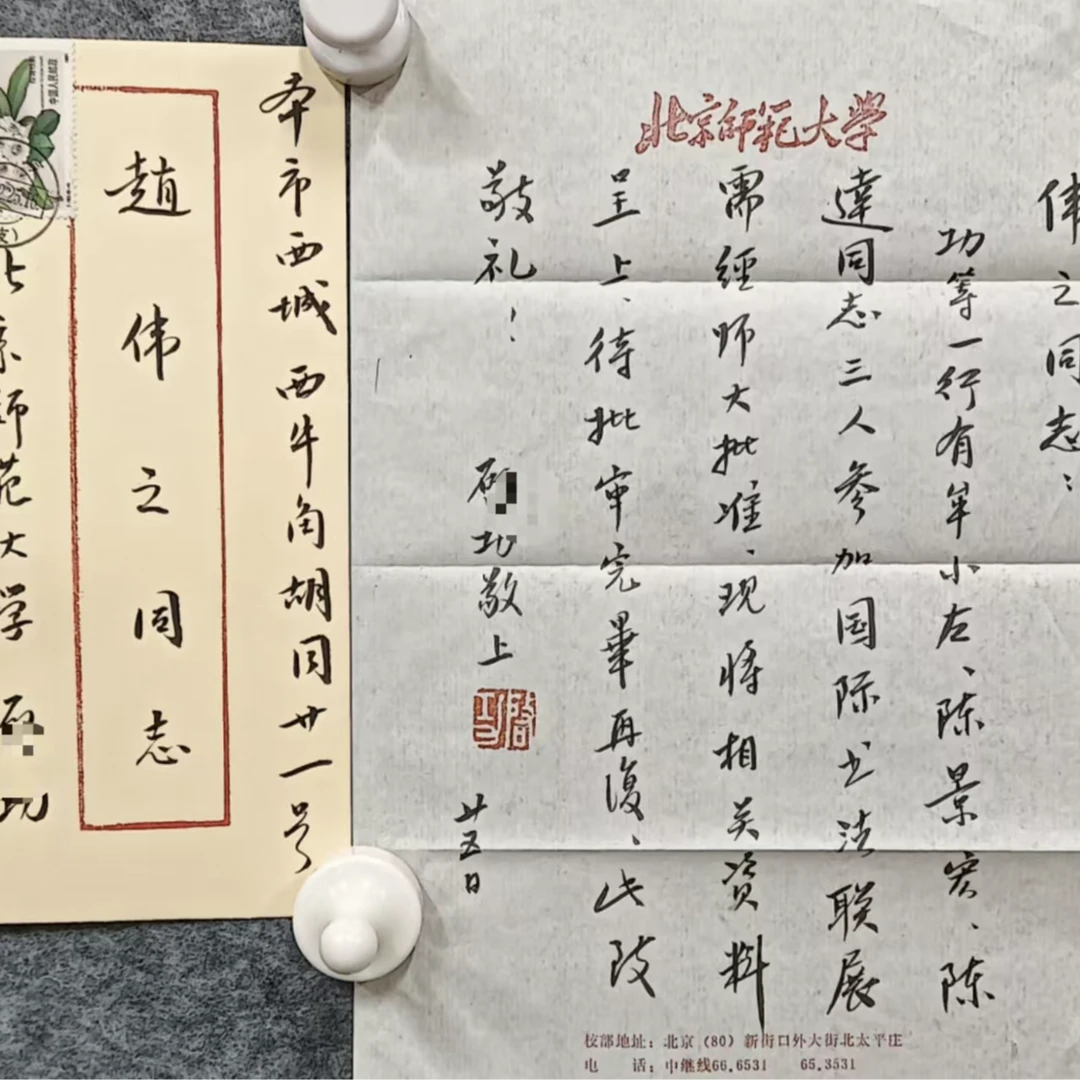 本市西城西牛角胡同廿一号
趙伟之同志
北京师范大学
功
中国人民邮政
北京师范大学
伟之同志：
功等一行有牟小左、陈景宏、陈
達同志三人參加国际书法联展
需經师大批准、现将相关資料
呈上、待批审完畢再復、此致
敬礼！
功敬上
启功
廿五日
校部地址：北京（80）新街口外大街北太平庄
电　话：中继线66.6531　65.3531